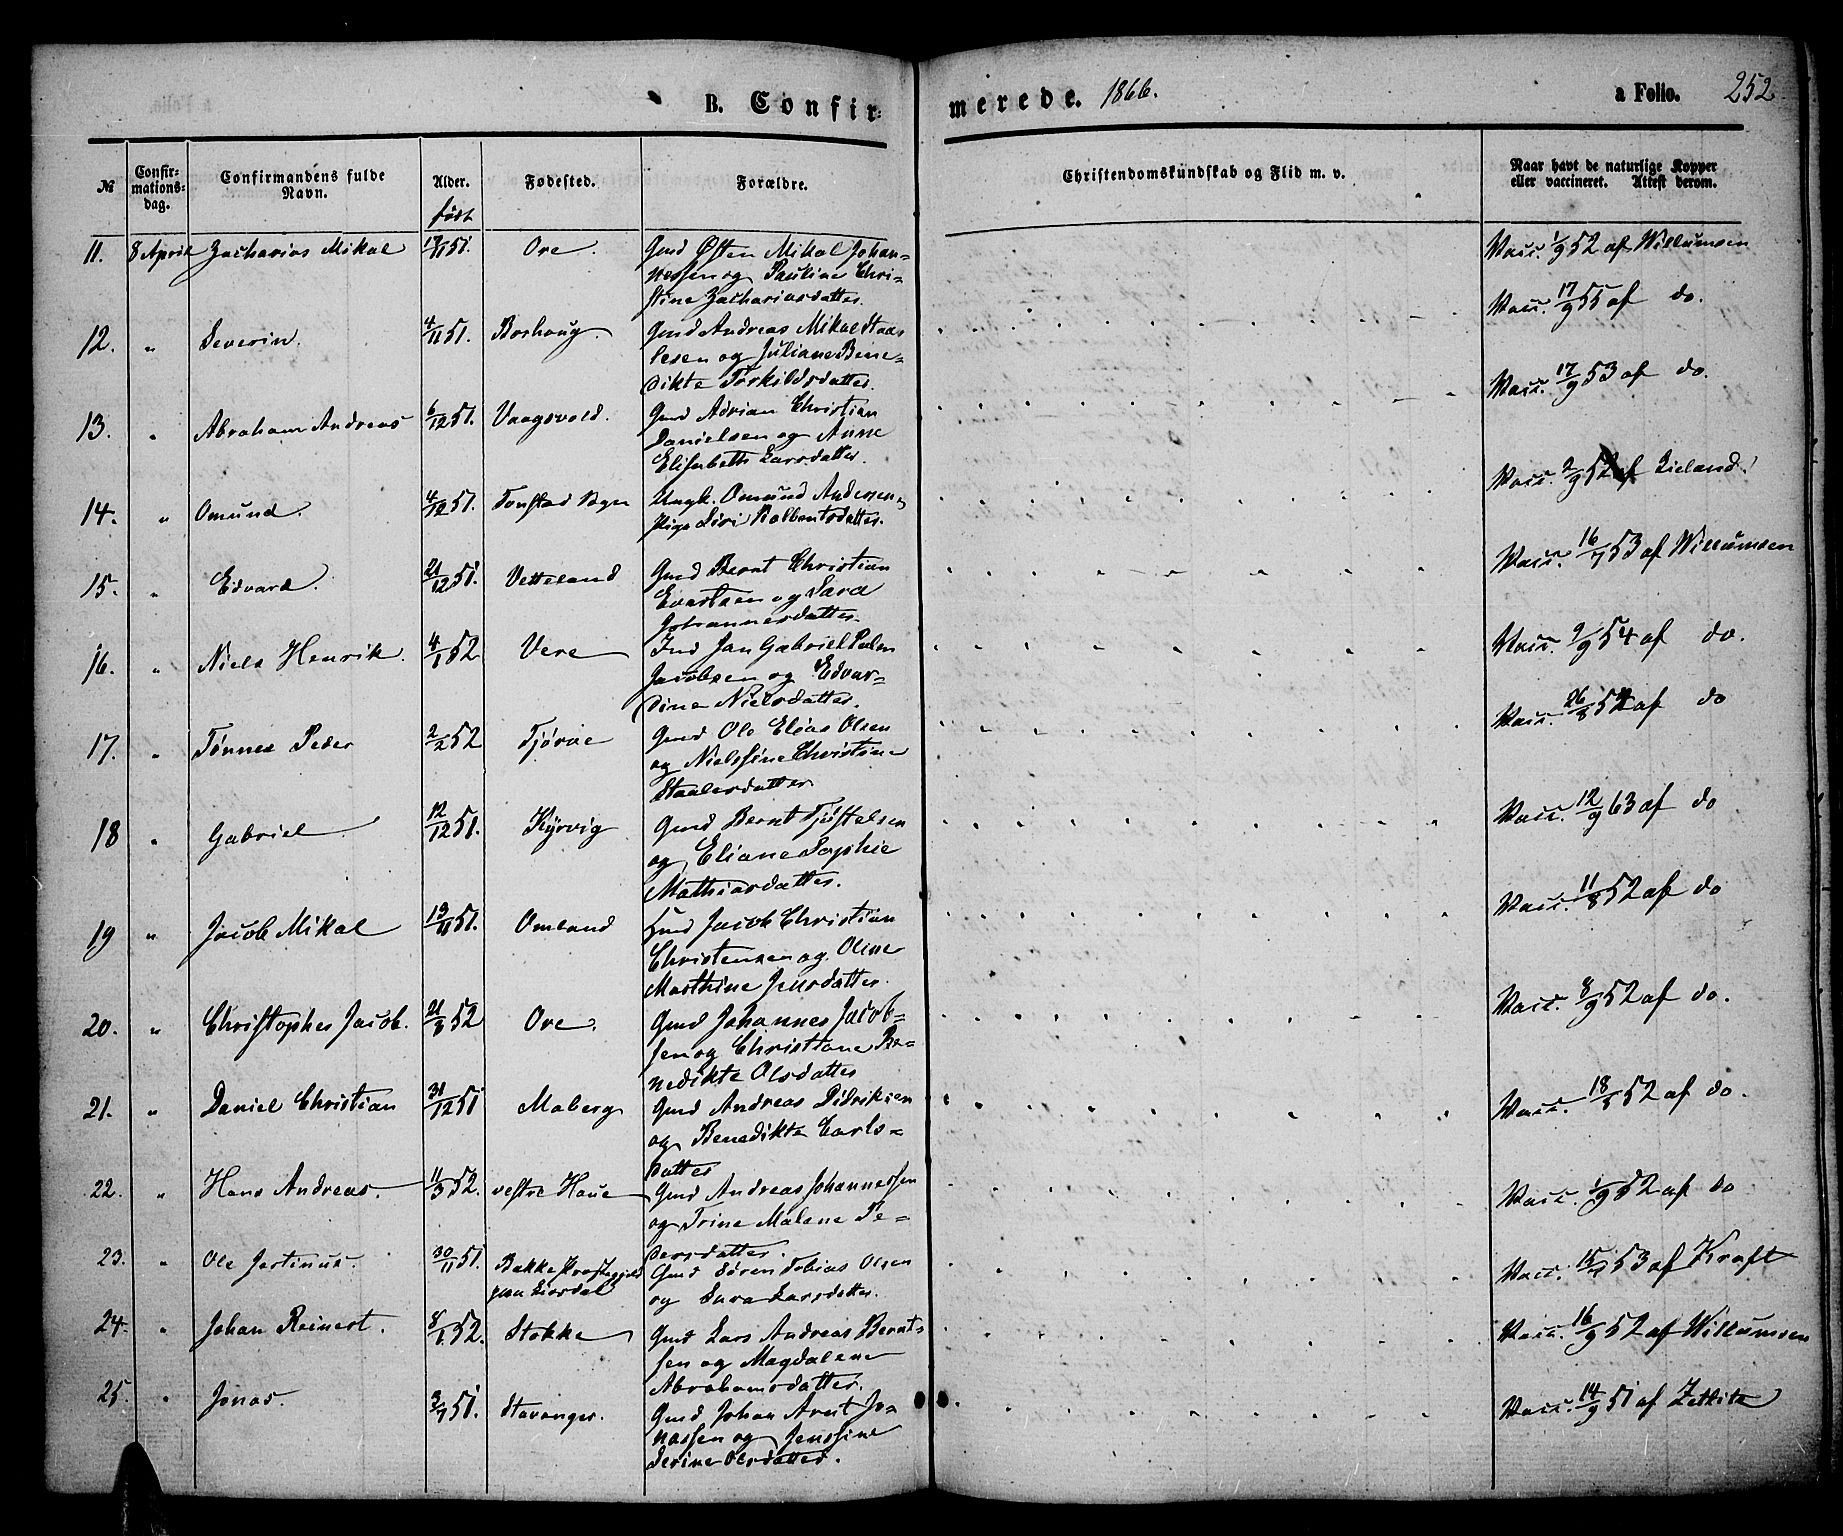 B. Confir=
merede. 1866.
a Folio. 252
№
Confir-mations-dag.
Confirmandens fulde Navn.
Alder. født
Fødested.
Forældre.
Christendomskundskab og Flid m. v.
Naar havt de naturlige Kopper eller vaccineret. Attest derom.
11. 8 April Zacharias Mikal 51. Ore. Gmd Østen Mikal Johan-
nessen og Pauline Chri-
stine Zachariasdatter.
Vacc. 1/9 52 af Willumsen
12. " Severin. 4/11 51. Borhaug. Gmd Andreas Mikal Staa-
lesen og Juliane Bene-
dikte Torkildsdatter.
Vacc. 17/9 55 af do.
13. " Abraham Andreas 6/12 51. Vaagsvold. Gmd Adrian Christian
Danielsen og Anne
Elisabeth Larsdatter.
Vacc. 17/9 53 af do.
14. " Omund. 4/12 51. Tonstad Sogn Ungk. Omund Andersen,
Pige Siri
Vacc. 2/9 52 af Sieland.
15. " Edvard. 21/12 51. Vetteland Gmd Bernt Christian
Evertsen og Sara
Johannesdatter.
Vacc. 16/7 53 af Willumsen
16. " Niels Henrik. 4/1 52 Vere Ind Jan Gabriel
Jacobsen og Edvar-
dine Nielsdatter.
Vacc. 9/9 54 af do.
17. " Tønnes Peder 2/2 52 Tjørve Gmd Ole Elias Olsen
og Nielsine Christine
Staalesdatter
Vacc. 26/8 52 af do
18 " Gabriel. 12/12 51. Kyrvig Gmd Bernt Tjøstelsen
og Eliane Sophie
Mathiasdatter.
Vacc. 12/9 63 af do
19 " Jacob Mikal 19/11 51. Omland Hmd Jacob Christian
Christensen og Oline
Marthine Jensdatter.
Vacc. 11/8 52 af do
20. " Christopher Jacob. 21/3 52 Ore. Gmd Johannes Jacob-
sen og Christiane Be-
nedikte Olsdatter
Vacc. 8/9 52 af do.
21. " Daniel Christian 31/12 51 Moberg Gmd Andreas Didriksen
og Benedikte Carls-
datter
Vacc. 18/8 52 af do.
22. " Hans Andreas. 11/3 52. vestre Haue Gmd Andreas Johannessen
og Trine Malene Pe-
dersdatter.
Vacc. 1/9 52 af do
23. " Ole Justinus. 30/11 51. Bakke Præstegjeld
Gmd Søren Tobias Olsen
og Sara Larsdatter.
Vacc. 53 af Kraft
24. " Johan Reinert. 8/1 52. Stokke Gmd Lars Andreas Bernt-
sen og Magdalene
Abrahamsdatter.
Vacc. 16/9 52 af Willumsen
25. " Jonas. 3/7 51. Stavanger. Gmd Johan Arnt Jo-
nassen og Jenssine
Serine Olsdatter.
Vacc. 14/9 51 af Zetlitz